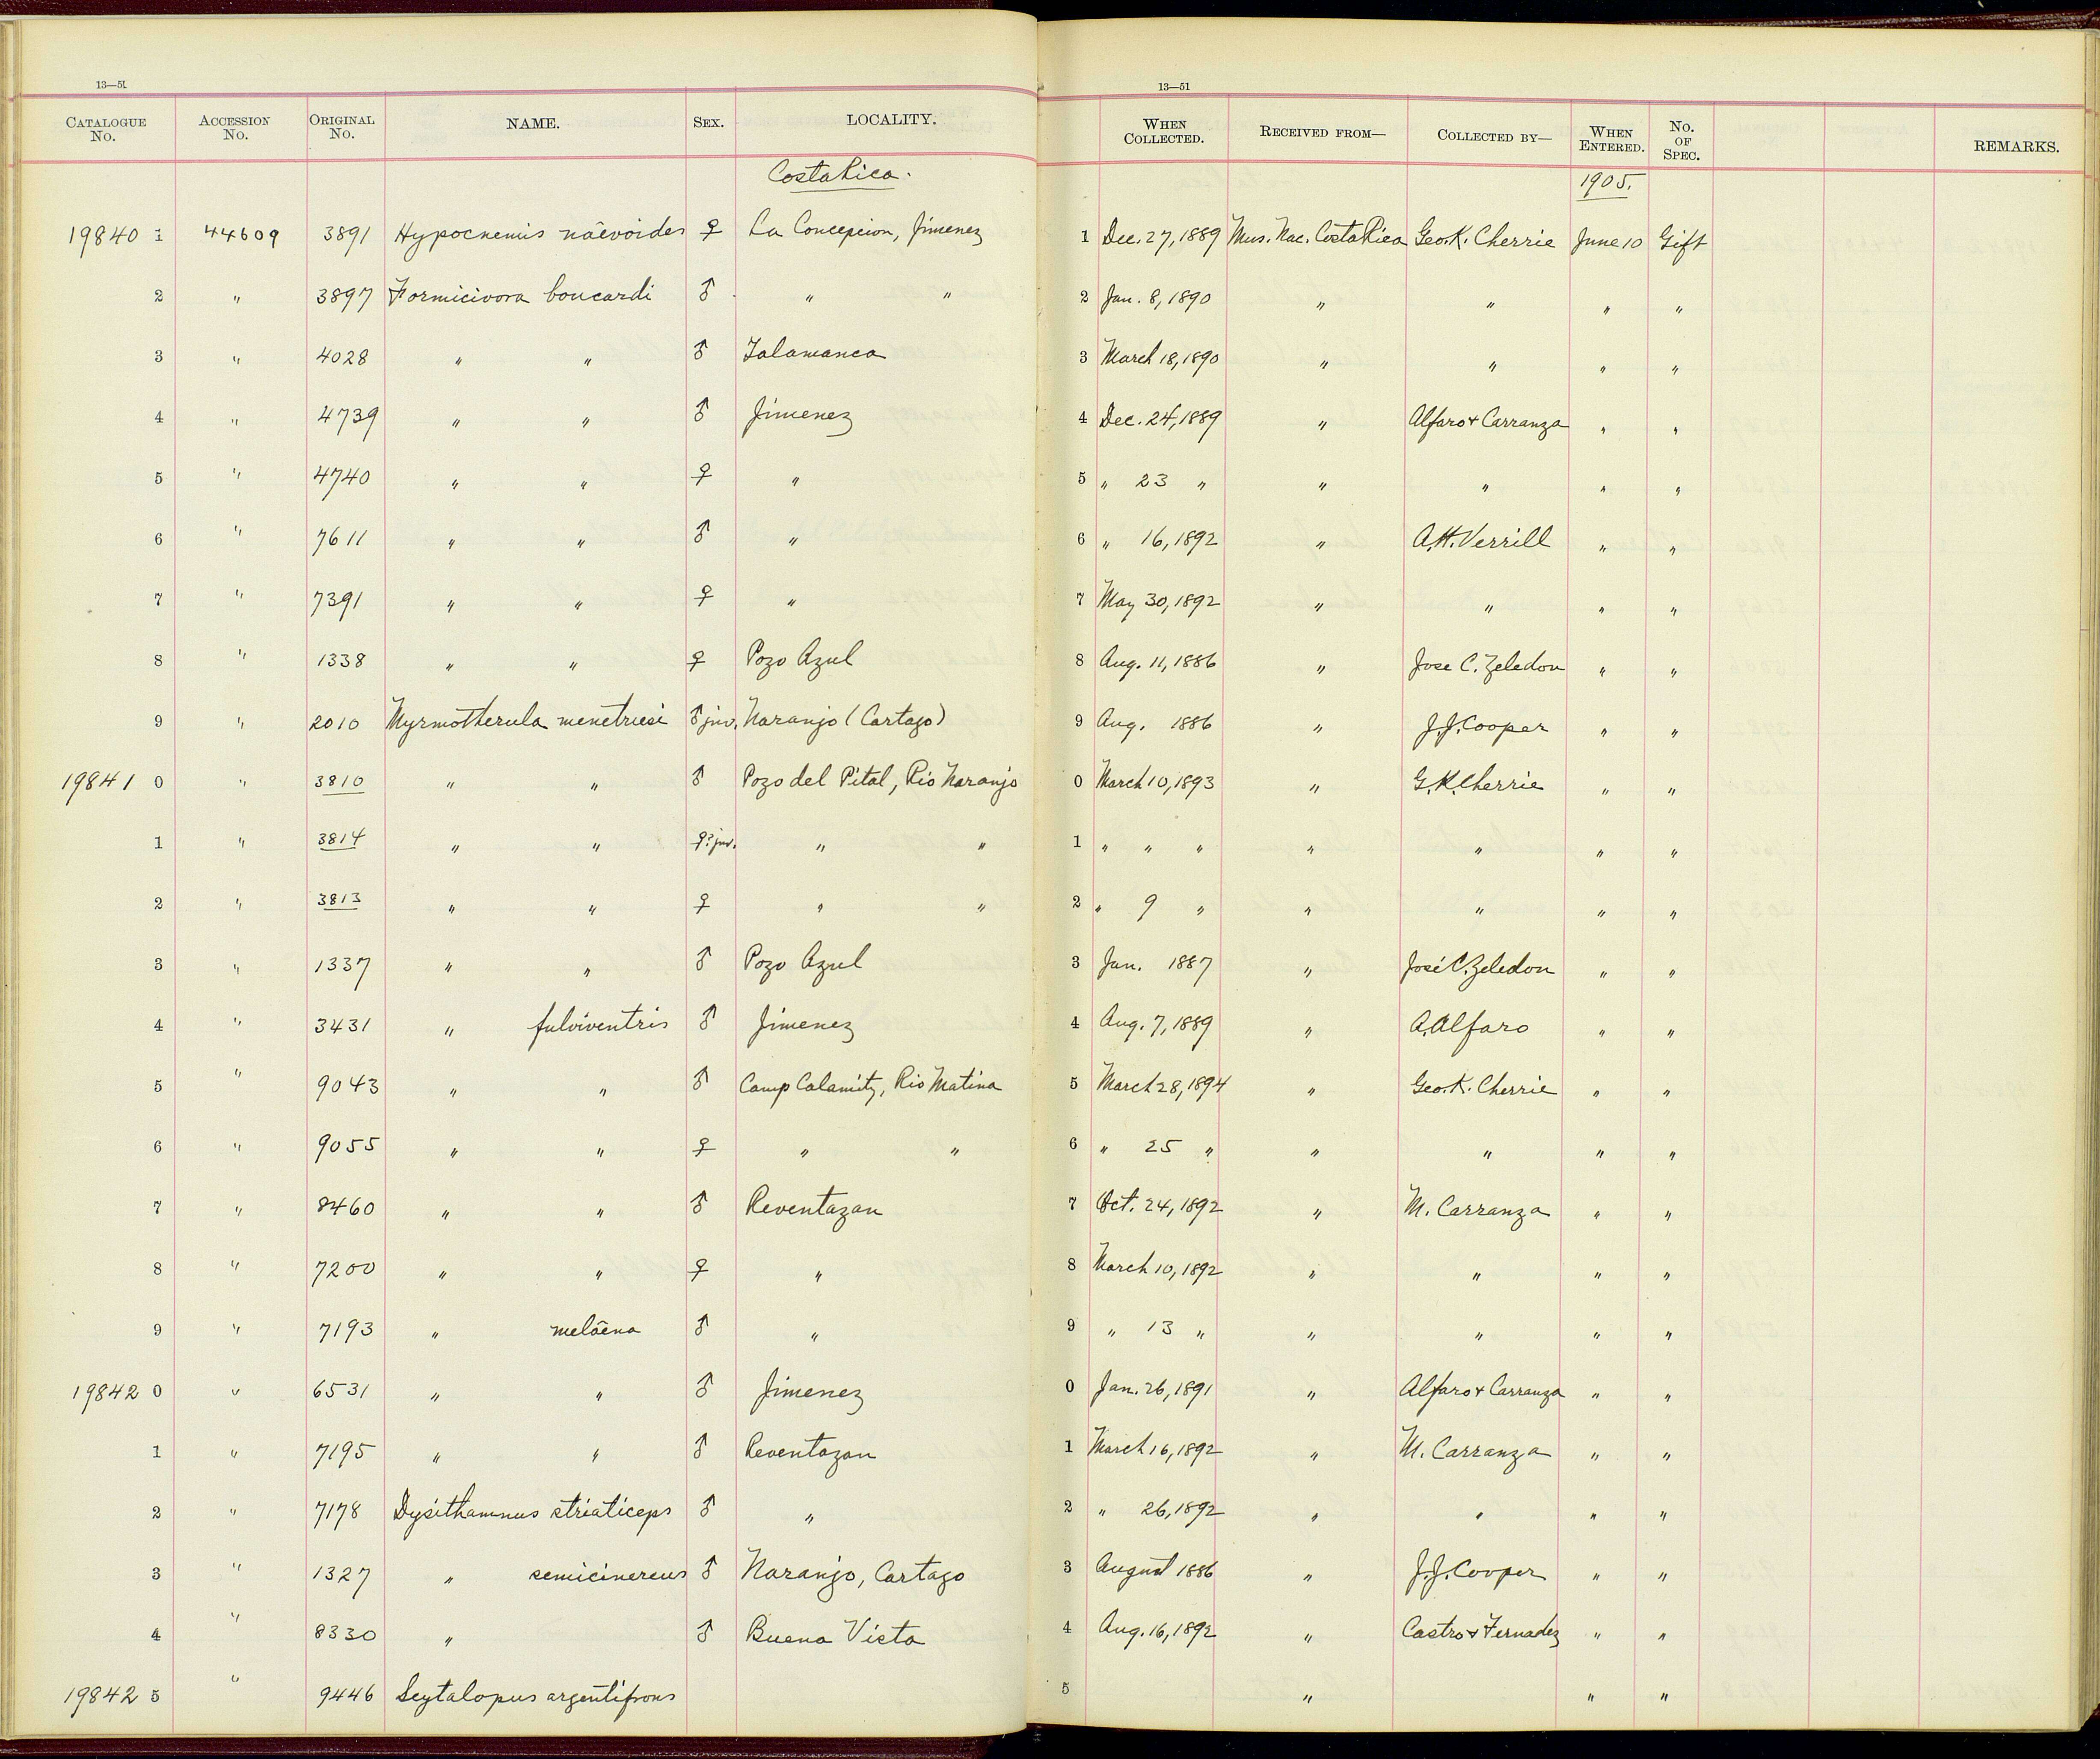 13—51
CATALOGUE No. ACCESSION No. ORIGINAL No. NAME. SEX. LOCALITY.
Costa Rica.
19840 1 44609 3891 Hypocnemis nâevoides ♀ La Concepcion, Jimenez
2 " 3897 Formicivora boucardi ♂ " "
3 " 4028 " " ♂ Talamanca
4 " 4739 " " ♂ Jimenez
5 " 4740 " " ♀ "
6 " 7611 " " ♂ "
7 " 7391 " " ♀ "
8 " 1338 " " ♀ Pozo Azul
9 " 2010 Myrmotherula menetriesi ♂ juv. Naranjo (Cartago)
19841 0 " 3810 " " ♂ Pozo del Pital, Rio Naranjo
1 " 3814 " " ♀? juv. " "
2 " 3813 " " ♀ " "
3 " 1337 " " ♂ Pozo Azul
4 " 3431 " fulviventris ♂ Jimenez
5 " 9043 " " ♂ Camp Calamity, Rio Matina
6 " 9055 " " ♀ " "
7 " 8460 " " ♂ Reventazan
8 " 7200 " " ♀ "
9 " 7193 " melâena ♂ "
19842 0 " 6531 " " ♂ Jimenez
1 " 7195 " " ♂ Reventazan
2 " 7178 Dysithamnus striaticeps ♂ "
3 " 1327 " semicinereus ♂ Naranjo, Cartago
4 " 8330 " ♂ Buena Vista
19842 5 " 9446 Scytalopus argentifrons
13—51
WHEN COLLECTED. RECEIVED FROM— COLLECTED BY— WHEN ENTERED. No. OF SPEC. REMARKS.
1905.
1 Dec. 27, 1889 Mus. Nac. Costa Rica Geo. K. Cherrie June 10 Gift
2 Jan. 8, 1890 " " " "
3 March 18, 1890 " " " "
4 Dec. 24, 1889 " Alfaro & Carranza " "
5 " 23 " " " " "
6 " 16, 1892 " A.H. Verrill " "
7 May 30, 1892 " " " "
8 Aug. 11, 1886 " Jose C. Zeledon " "
9 Aug. 1886 " J.J. Cooper " "
0 March 10, 1893 " G.K. Cherrie " "
1 " " " " " " "
2 " 9 " " " " "
3 Jan. 1887 " José C. Zeledon " "
4 Aug. 7, 1889 " A. Alfaro " "
5 March 28, 1894 " Geo. K. Cherrie " "
6 " 25 " " " " "
7 Oct. 24, 1892 " M. Carranza " "
8 March 10, 1892 " " " "
9 " 13 " " " " "
0 Jan. 26, 1891 " Alfaro & Carranza " "
1 March 16, 1892 " M. Carranza " "
2 " 26, 1892 " " " "
3 August 1886 " J.J. Cooper " "
4 Aug. 16, 1892 " Castro & Fernadez " "
5 " " "